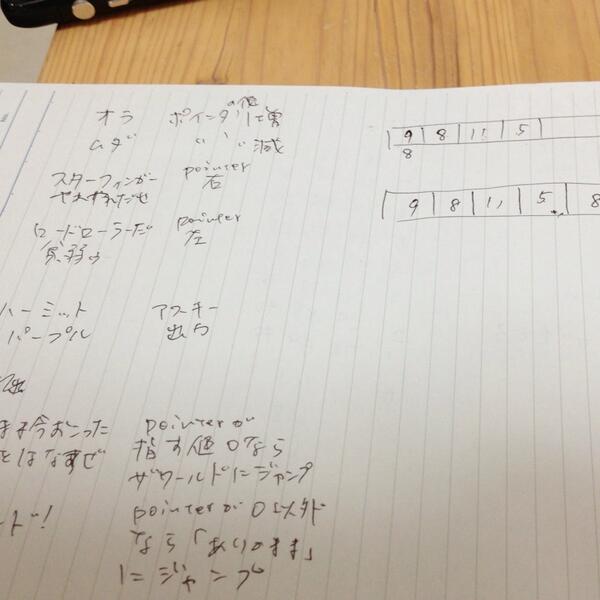 オラ ポインタの値1増
ムダ 〃 〃 減
スターフィンガー pointer
やれやれだぜ 右
ロードローラーだ pointer
貧弱ゥ 左
ハーミット アスキー
パープル 出力
今おこった pointerが
はなすぜ 指す値0なら
ザワールドにジャンプ
ード! pointerが0以外
なら「ありのまま」
にジャンプ
9 8 11 5
8
9 8 11 5 8